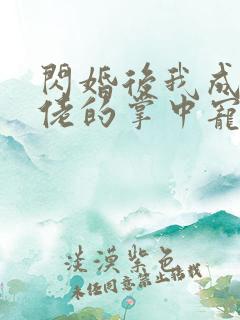 閃婚後我成
佬的掌中寵
淡漠紫色
未经同意禁止搭我